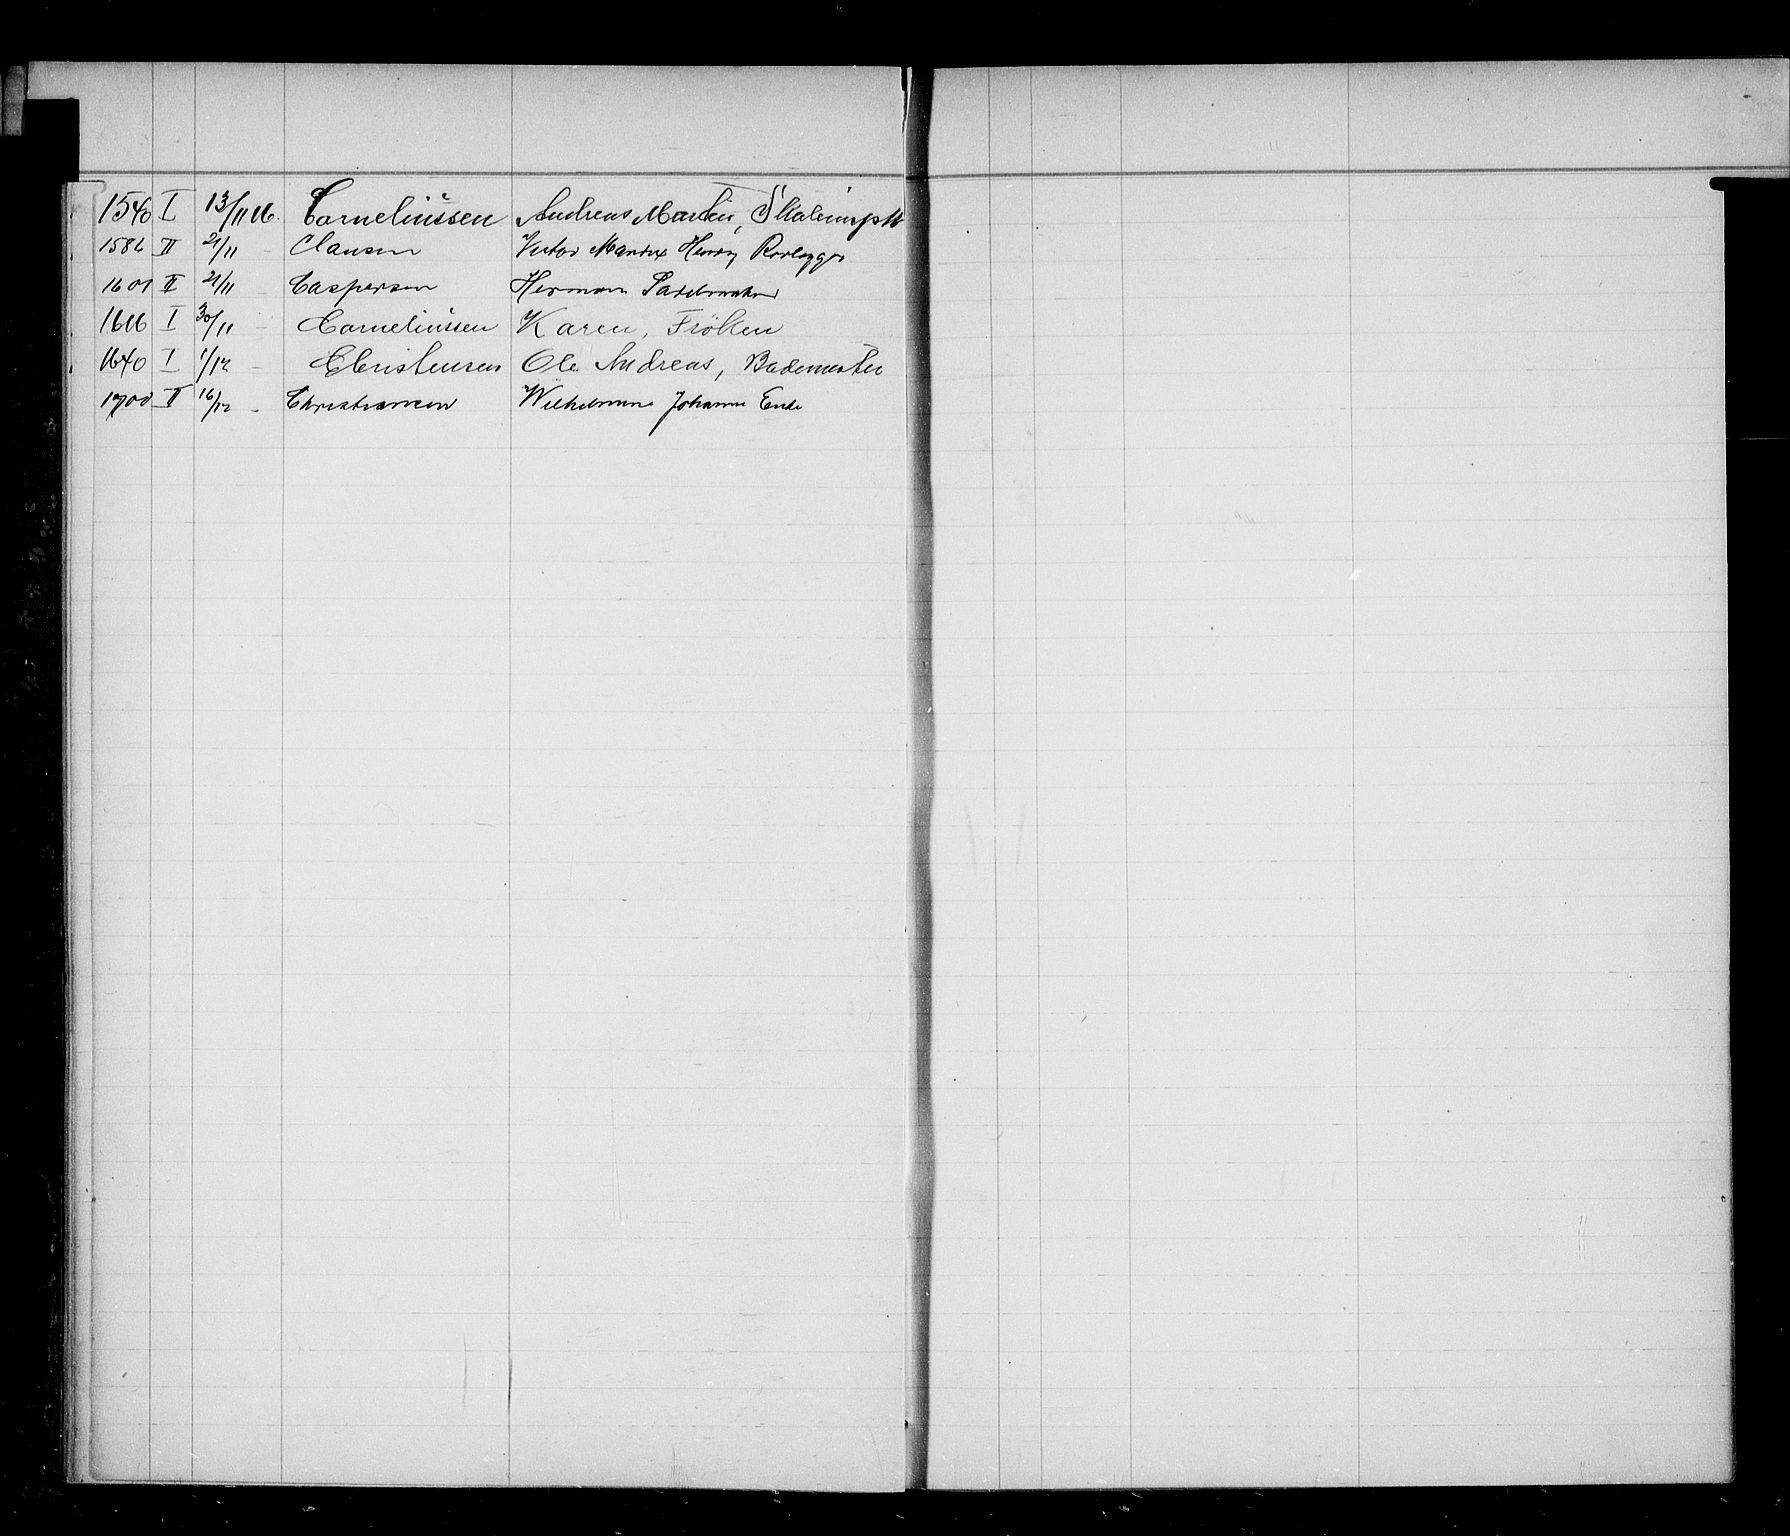 1540 I 13/11 16. Corneliussen Andreas Martin, Skateinsp
1586 II 21/11 - Clausen Victor Marius Henry Rørlegger
1601 II 21/11 Caspersen Herman Sadelmaker
1616 I 30/11 - Corneliussen Karen, Frøken
1640 I 1/12 - Christensen Ole Andreas, Bademester
1700 II 16/12 - Christiansen Wilhelmine Johanne Enke